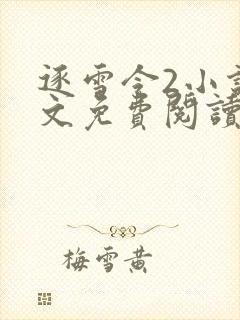 逐雪令2小
文免費閱讀
梅雪黄